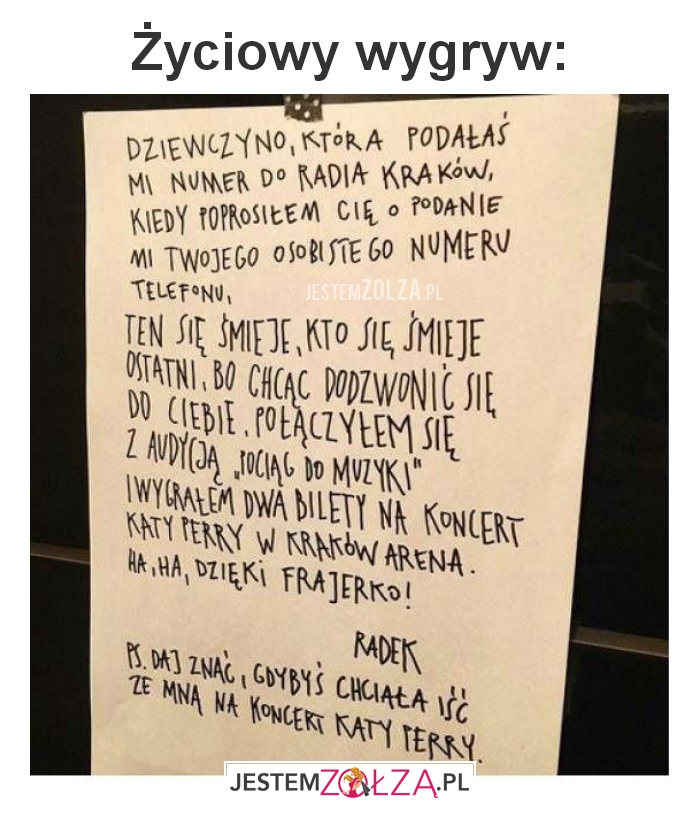 Życiowy wygryw:
DZIEWCZYNO, KTÓRA PODAŁAŚ
MI NUMER DO RADIA KRAKÓW,
KIEDY POPROSIŁEM CIĘ O PODANIE
MI TWOJEGO OSOBISTEGO NUMERU
TELEFONU,
JESTEMZOLZA.PL
TEN SIĘ ŚMIEJE, KTO SIĘ ŚMIEJE
OSTATNI, BO CHCĄC DODZWONIĆ SIĘ
DO CIEBIE, POŁĄCZYŁEM SIĘ
Z AUDYCJĄ „POCIĄG DO MUZYKI"
I WYGRAŁEM DWA BILETY NA KONCERT
KATY PERRY W KRAKÓW ARENA.
HA, HA, DZIĘKI FRAJERKO!
RADEK
PS. DAJ ZNAĆ, GDYBYŚ CHCIAŁA IŚĆ
ZE MNĄ NA KONCERT KATY PERRY.
JESTEMZOŁZĄ.PL